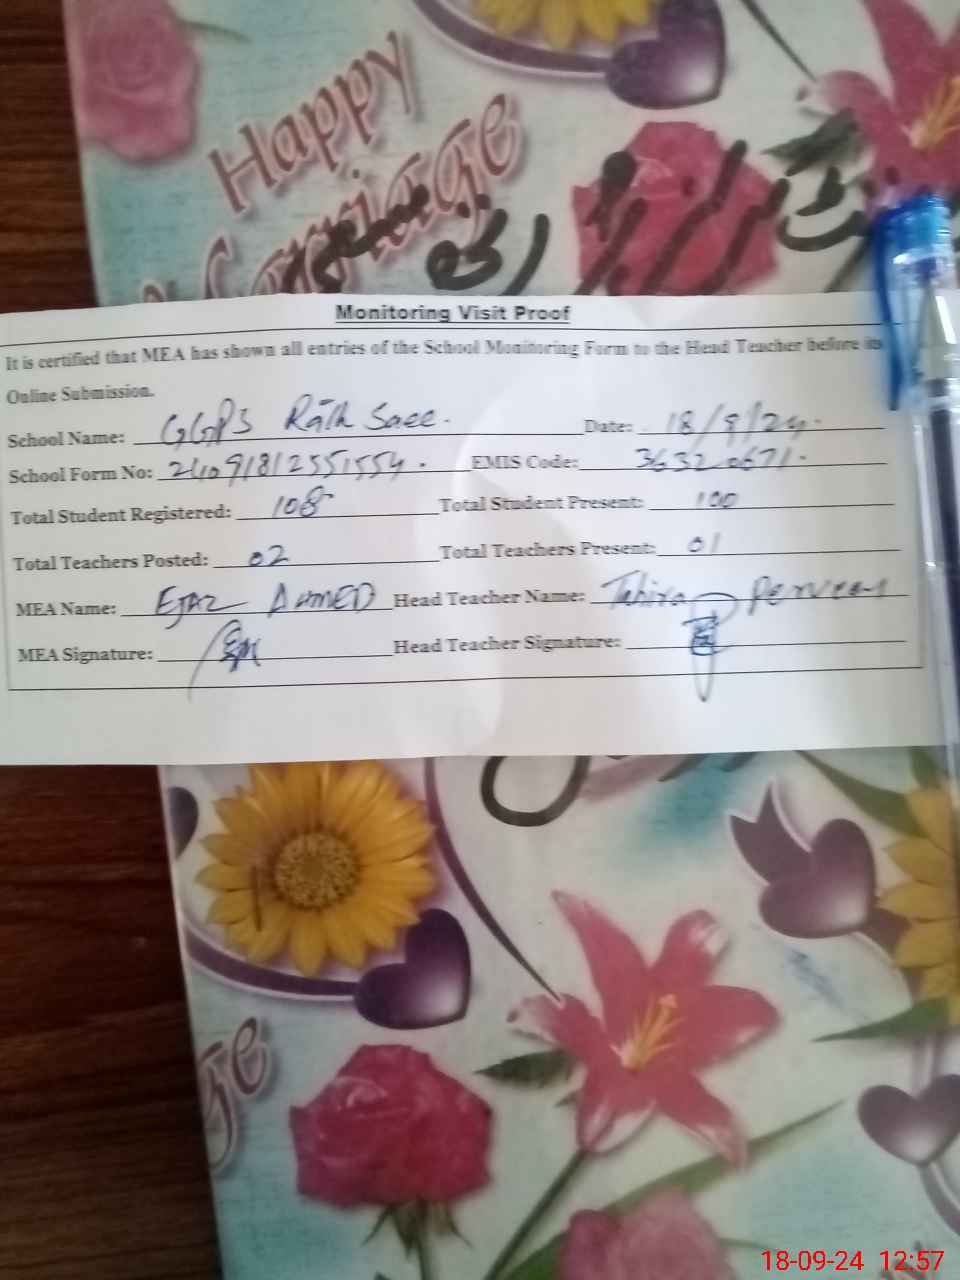 Happy
Monitoring Visit Proof
It is certified that MEA has shown all entries of the School Monitoring Form to the Head Teacher before its
Online Submission.
School Name: GGPS Rath Saee. Date: 18/9/24.
School Form No: 24091812551554. EMIS Code: 36320671.
Total Student Registered: 108 Total Student Present: 100
Total Teachers Posted: 02 Total Teachers Present: 01
MEA Name: EJAZ AHMED Head Teacher Name: Tahira Perveen
MEA Signature: Head Teacher Signature:
18-09-24 12:57